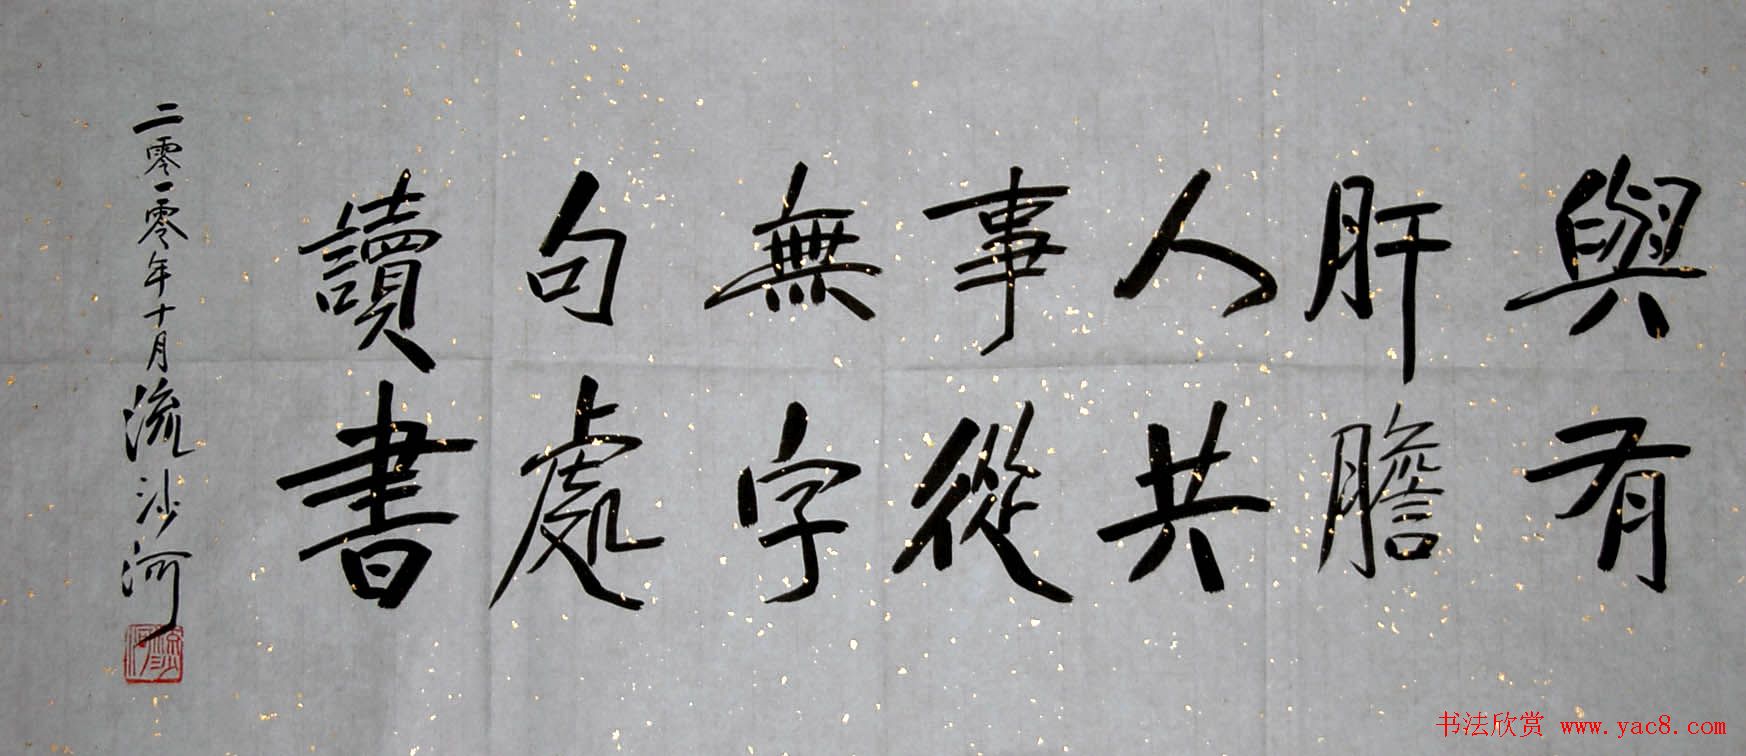 與有
肝膽
人共
事從
無字
句處
讀書
二零一零年十月流沙河
流沙河
书法欣赏 www.yac8.com